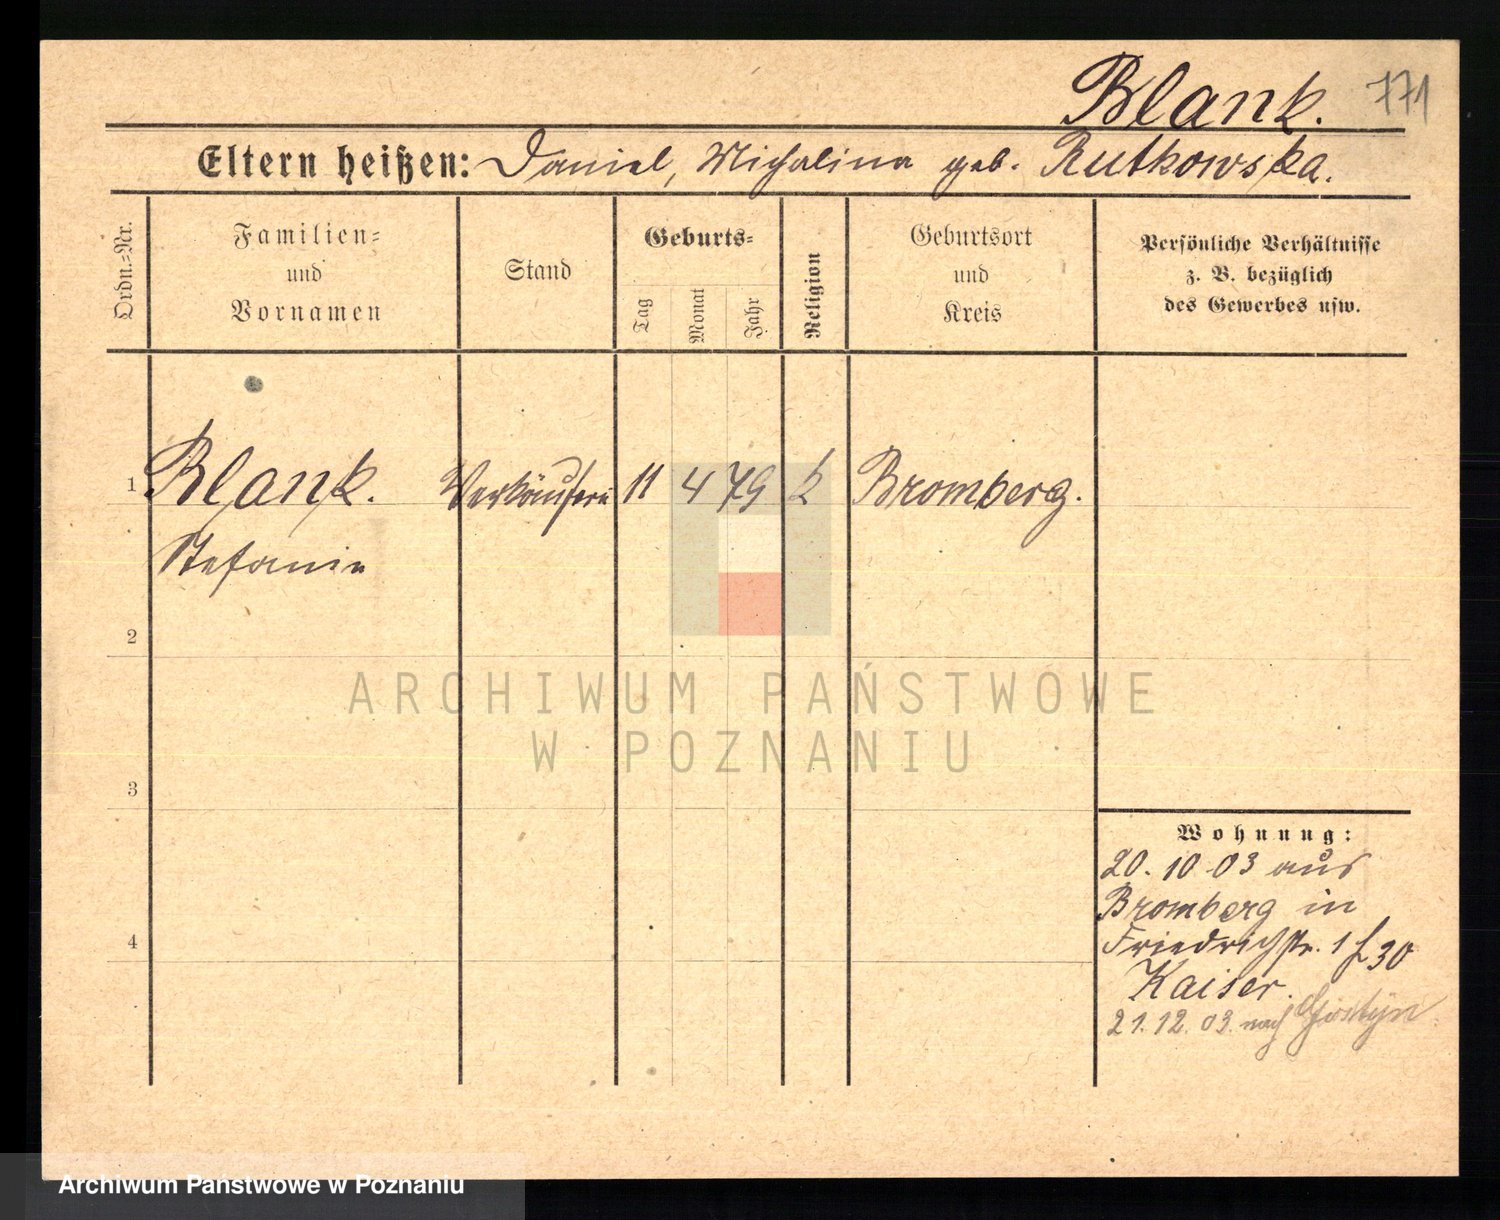 Blank. 771
Eltern heißen: Daniel, Michalina geb. Rutkowska.
Ordn.-Nr.
Familien-
und
Vornamen
Stand
Geburts-
Tag
Monat
Jahr
Religion
Geburtsort
und
Kreis
Persönliche Verhältnisse
z. B. bezüglich
des Gewerbes usw.
1 Blank. Verkäuferin 11 4 79 k Bromberg.
Stefanie
2
3
4
Wohnung:
20. 10 03 aus
Bromberg in
Friedrichstr. 1 f 30
Kaiser.
21. 12. 03. nach Gostyn
ARCHIWUM PAŃSTWOWE
W POZNANIU
Archiwum Państwowe w Poznaniu